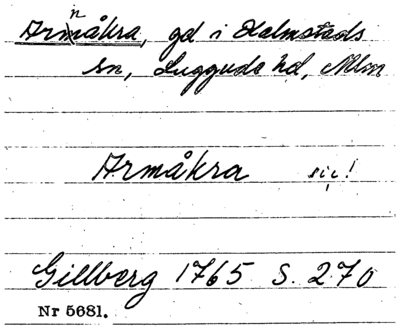 Arnåkra, gd i Halmstads
sn, Luggude hd, Mlm
Armåkra sic!
Gillberg 1765 S. 270
Nr 5681.